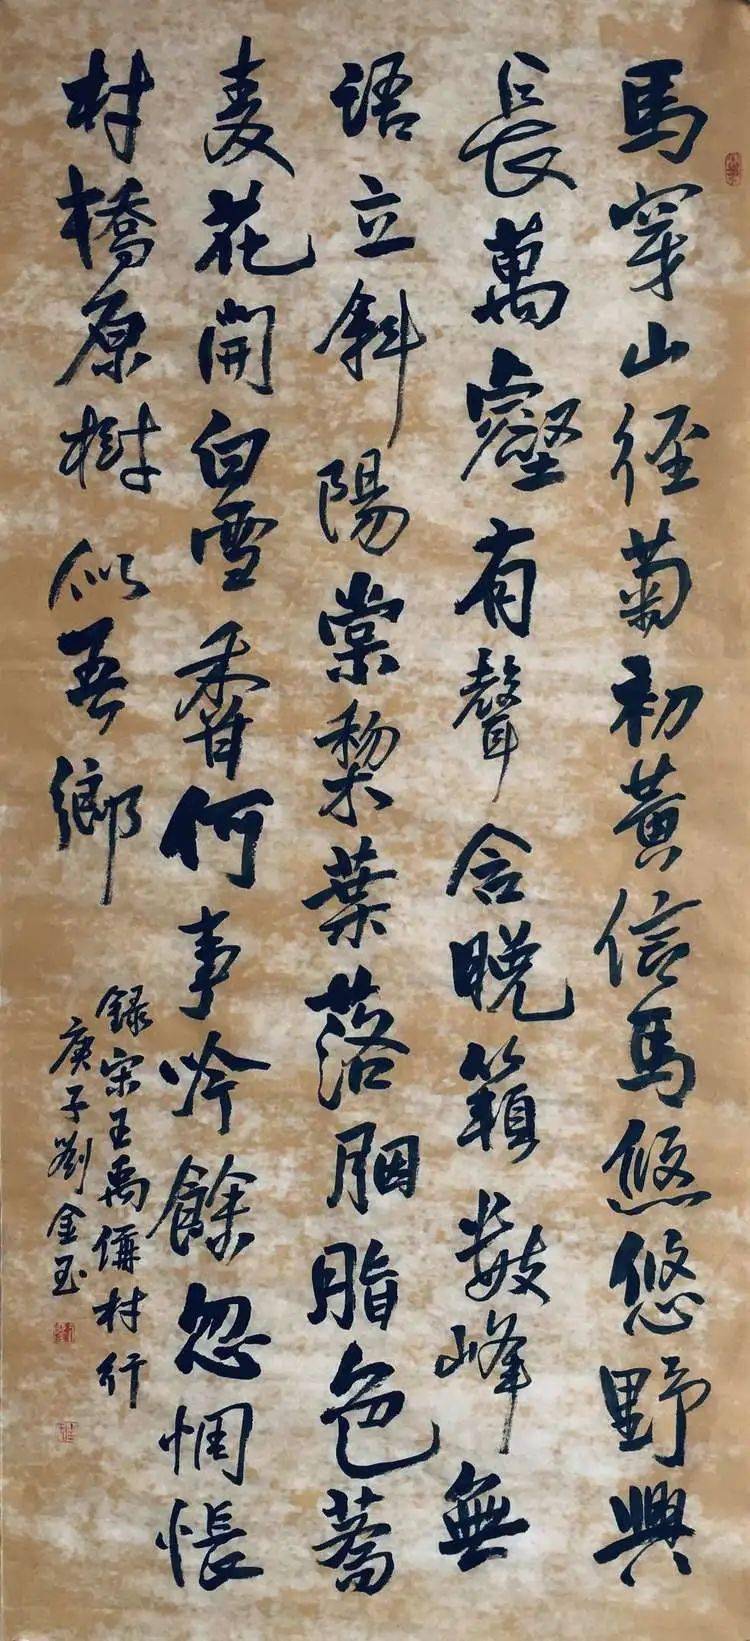 馬穿山徑菊初黃信馬悠悠野興
長萬壑有聲含晚籟數峰無
語立斜陽棠梨葉落胭脂色蕎
麦花開白雪香何事吟餘忽惆悵
村橋原樹似吾鄉
録宋王禹偁村行
庚子劉金玉